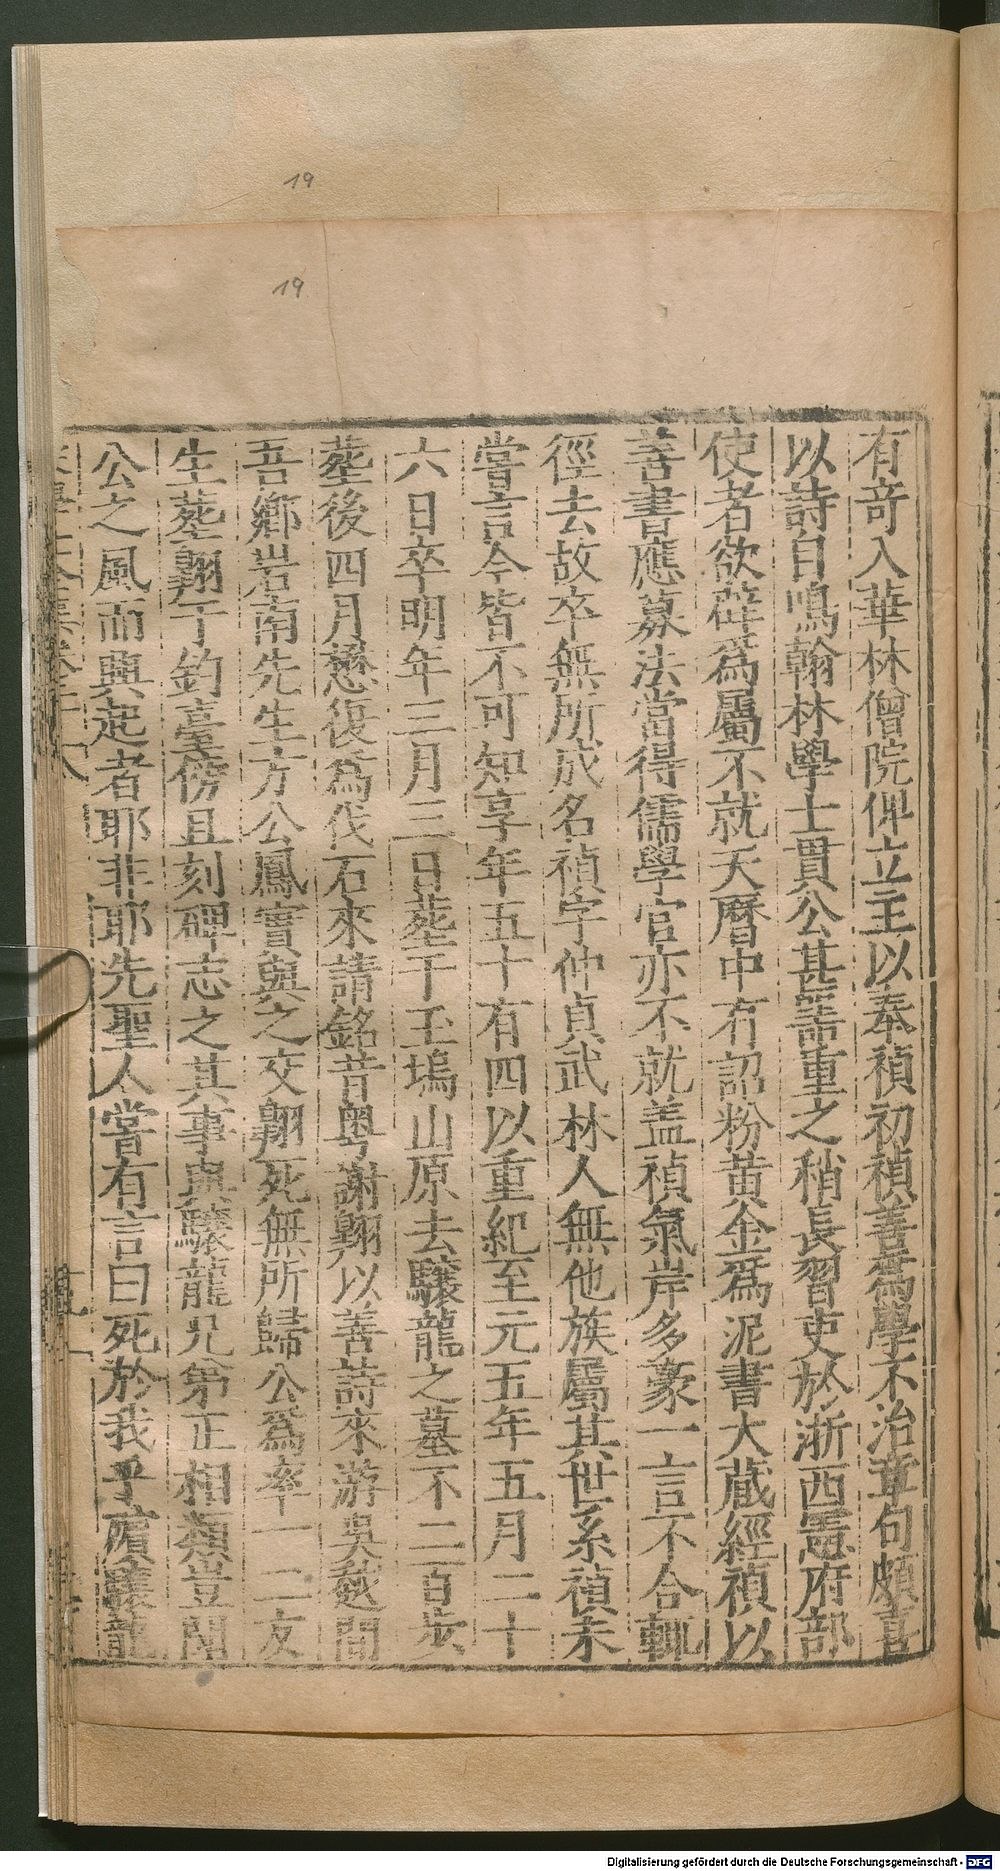 19
19
有奇入華林僧院俾立主以奉禎初禎善爲學不治章句頗喜
以詩自鳴翰林學士貫公甚噐重之稍長習吏於浙西憲府部
使者欲辟爲屬不就天曆中有詔粉黄金爲泥書大蔵經禎以
善書應募法當得儒學官亦不就盖禎氣岸多豪一言不合輒
徑去故卒無所成名禎字仲貞武林人無他族屬其世系禎未
嘗言今皆不可知享年五十有四以重紀至元五年五月二十
六日卒明年三月三日葬于玉塢山原去驤龍之墓不二百步
葬後四月懋復爲伐石來請銘昔粤謝翺以善詩來游吳越間
吾鄉岩南先生方公鳳實與之交翺死無所歸公爲率一二友
生葬翺于釣臺傍且刻碑志之其事與驤龍兄弟正相類豈聞
公之風而興起者耶非耶先聖人嘗有言曰死於我乎殯驤龍
Digitalisierung gefördert durch die Deutsche Forschungsgemeinschaft - DFG